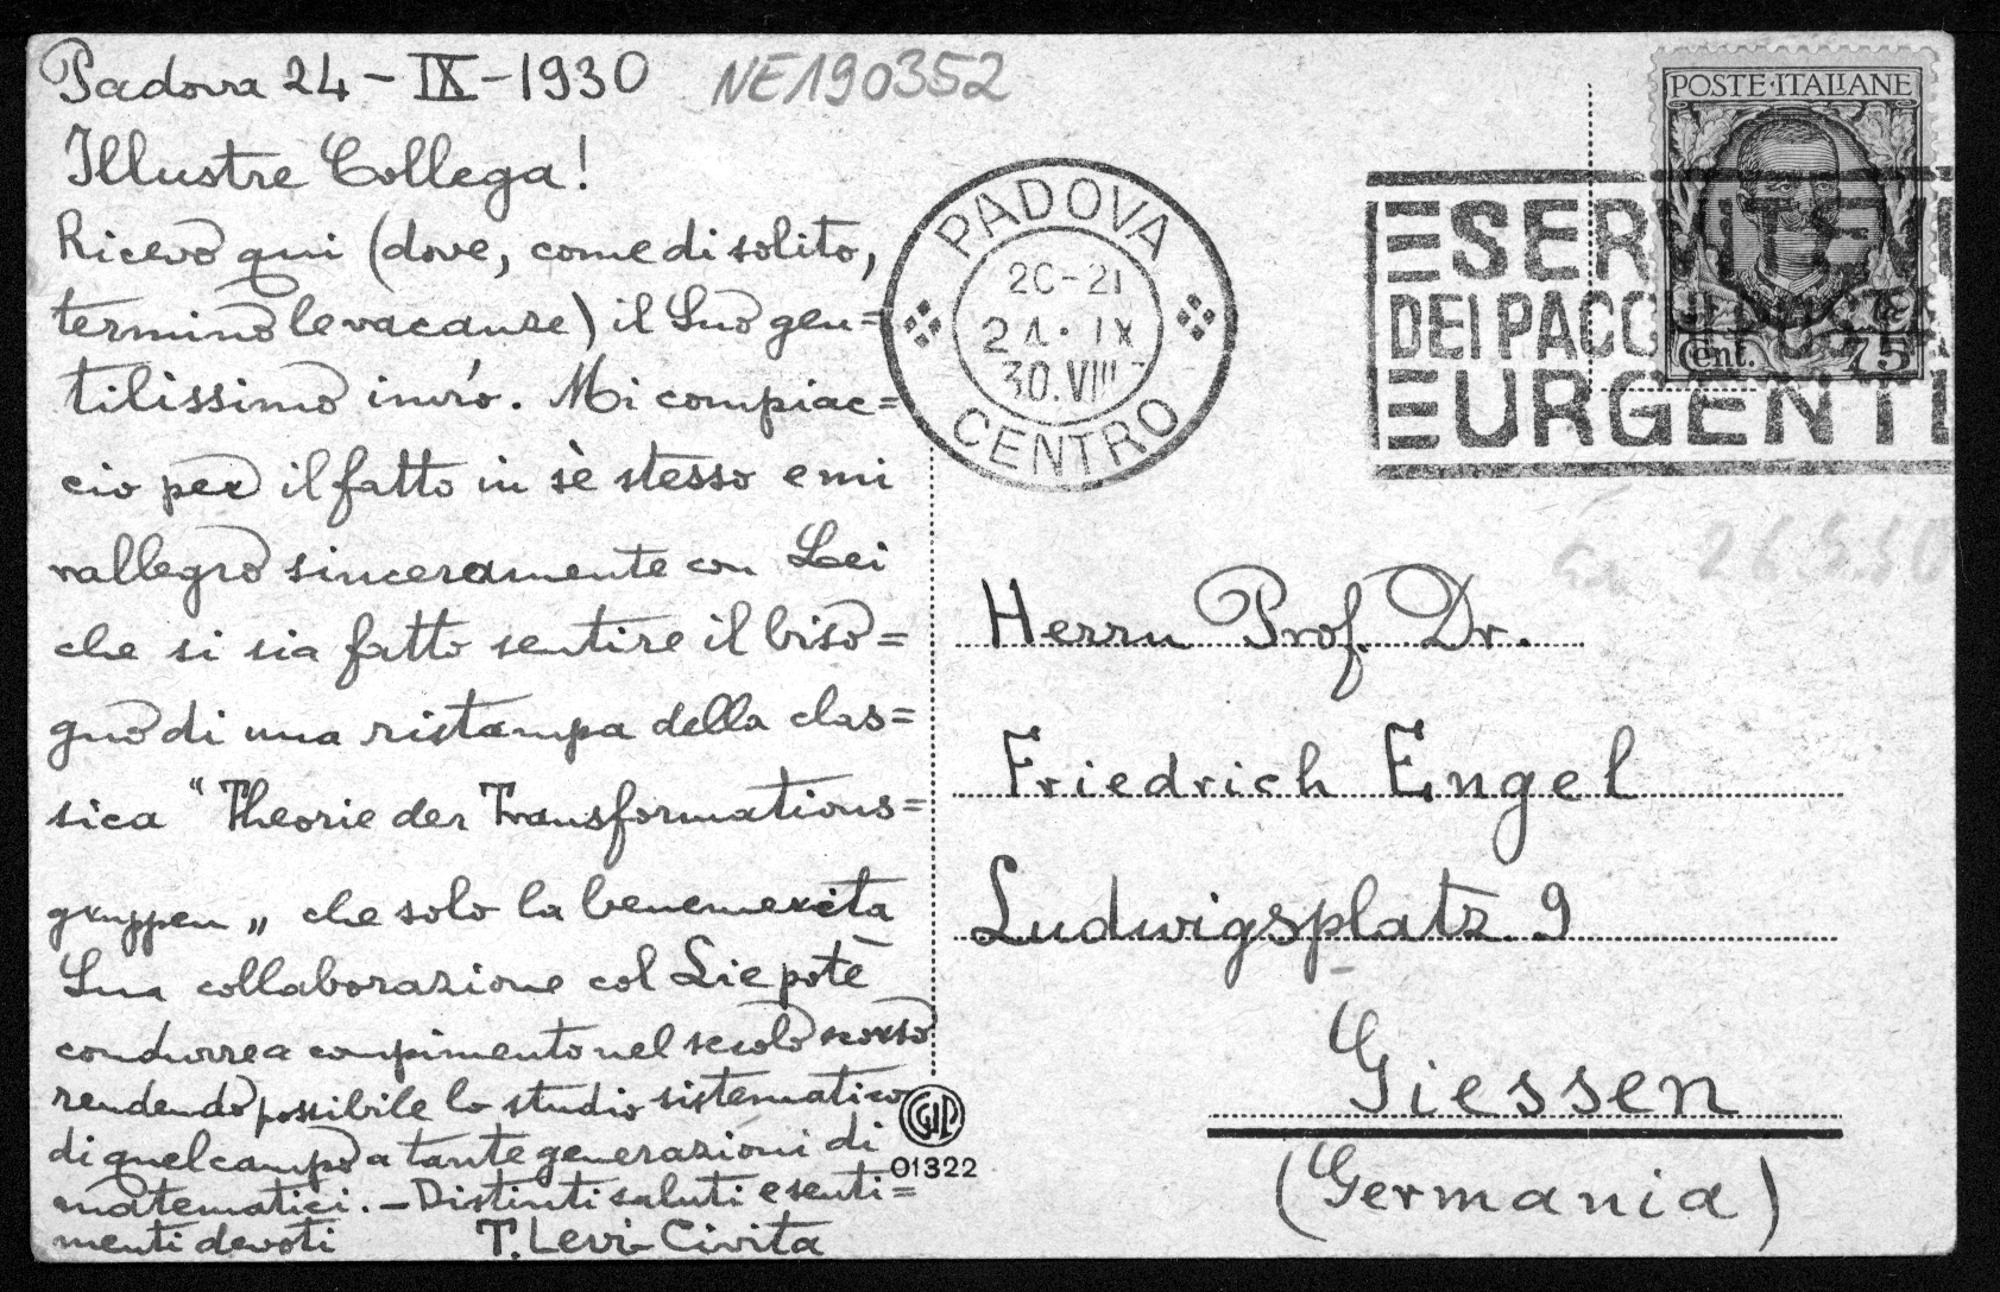 Padova 24 - IX - 1930
NE190352
Illustre Collega!
Ricevo qui (dove, come di solito,
termino le vacanze) il Suo gen=
tilissimo invio. Mi compiac=
cio per il fatto in sè stesso e mi
rallegro sinceramente con Lei
che si sia fatto sentire il biso=
gno di una ristampa della clas=
sica "Theorie der Transformations=
gruppen„ che solo la benemerita
Sua collaborazione col Lie potè
condurre a compimento nel secolo scorso
rendendo possibile lo studio sistematico
di quel campo a tante generazioni di
matematici. - Distinti saluti e senti=
menti devoti T. Levi-Civita
PADOVA
20-21
24 · IX
30. VIII
CENTRO
POSTE·ITALIANE
Cent. 75
SERVITEVI
DEI PACCHI POSTA
URGENTI
26.9.30
Herrn Prof. Dr.
Friedrich Engel
Ludwigsplatz 9
Giessen
(Germania)
01322